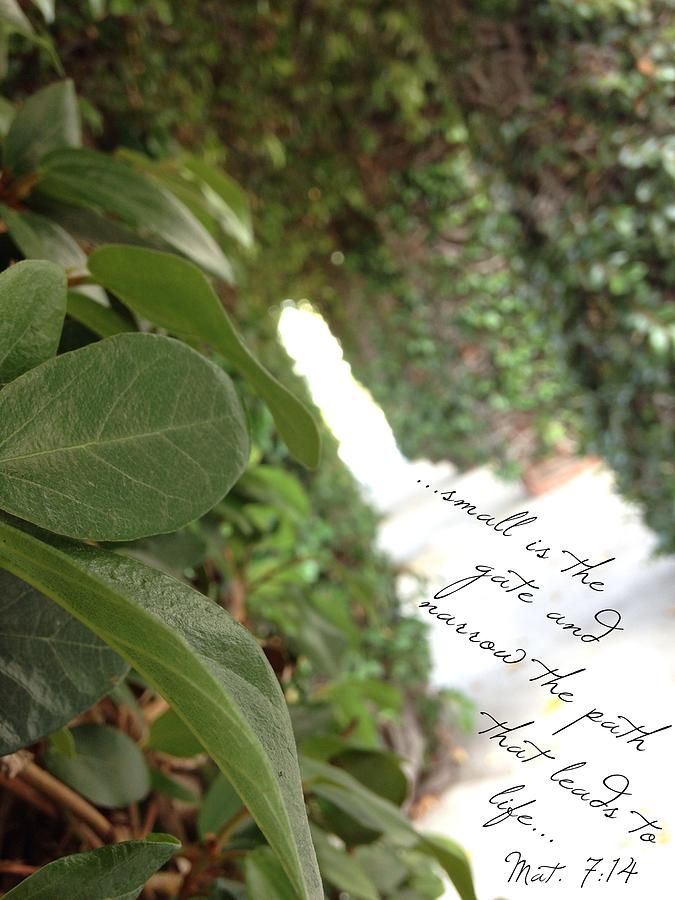 ...small is the
gate and
narrow the path
that leads to
life...
Mat. 7:14